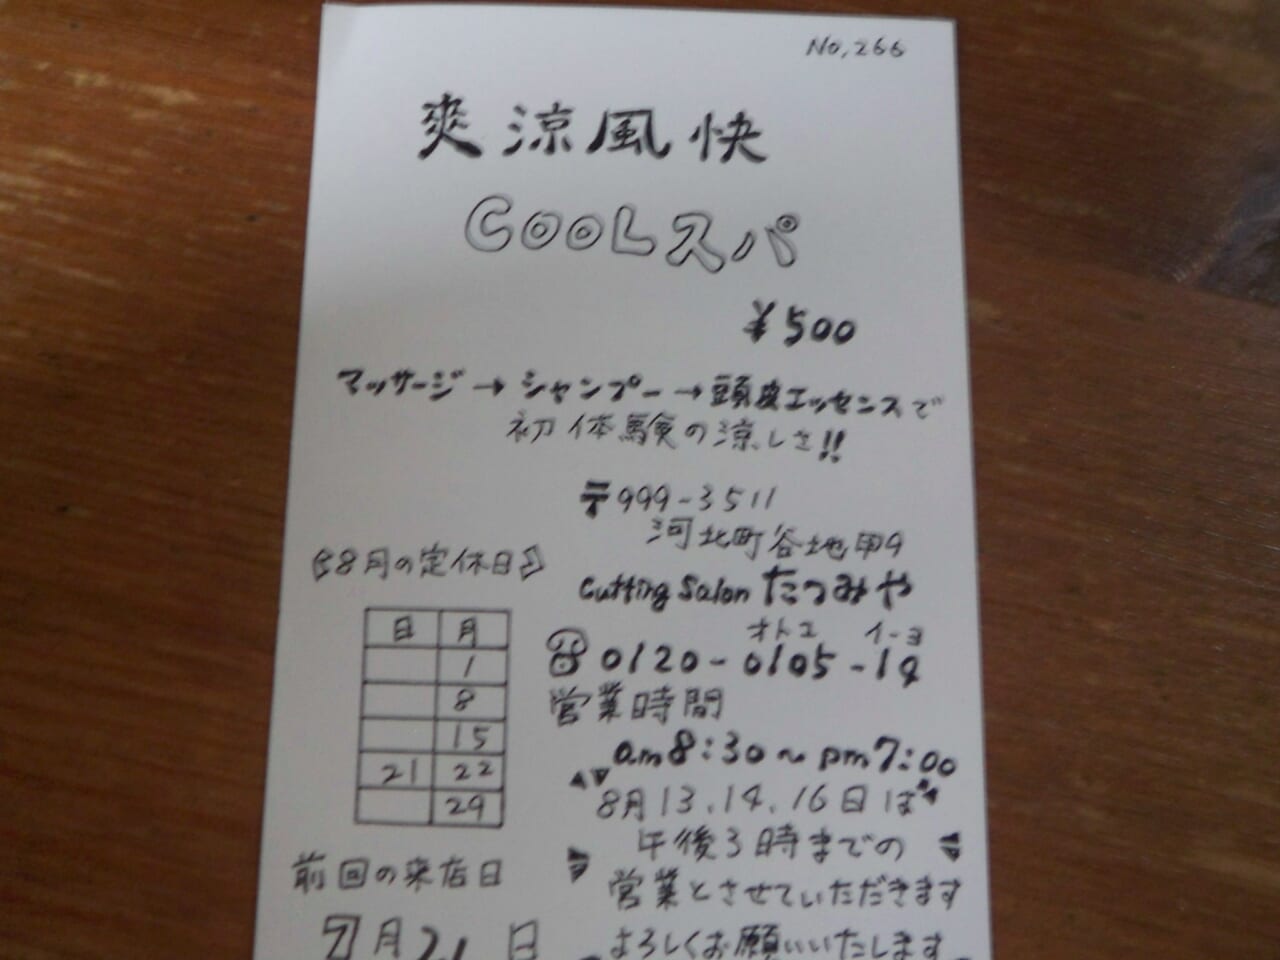 No,266
爽涼風快
COOLスパ
¥500
マッサージ→シャンプー→頭皮エッセンスで
初体験の涼しさ!!
〒999-3511
河北町谷地甲9
Cutting Salon たつみや
オトコ イーヨ
0120-0105-14
営業時間
am8:30~pm7:00
8月13.14.16日は
午後3時までの
営業とさせていただきます
よろしくお願いいたします
《8月の定休日》
日 月
1
8
15
21 22
29
前回の来店日
7月21日